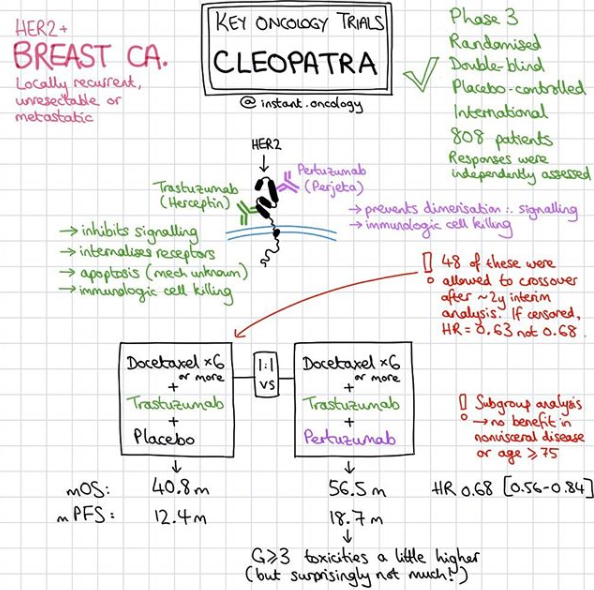 HER2+
BREAST CA.
Locally recurrent,
unresectable or
metastatic
KEY ONCOLOGY TRIALS
CLEOPATRA
@instant.oncology
Phase 3
Randomised
Double-blind
Placebo-controlled
International
808 patients
Responses were
independently assessed
HER2
Trastuzumab
(Herceptin)
Pertuzumab
(Perjeta)
→ inhibits signalling
→ internalises receptors
→ apoptosis (mech unknown)
→ immunologic cell killing
→ prevents dimerisation ∴ signalling
→ immunologic cell killing
! 48 of these were
allowed to crossover
after ~2y interim
analysis. If censored,
HR = 0.63 not 0.68.
Docetaxel ×6
or more
+
Trastuzumab
+
Placebo
1:1
vs
Docetaxel ×6
or more
+
Trastuzumab
+
Pertuzumab
! Subgroup analysis
→ no benefit in
nonvisceral disease
or age ≥ 75
mOS: 40.8m 56.5m HR 0.68 [0.56-0.84]
mPFS: 12.4m 18.7m
G≥3 toxicities a little higher
(but surprisingly not much!)